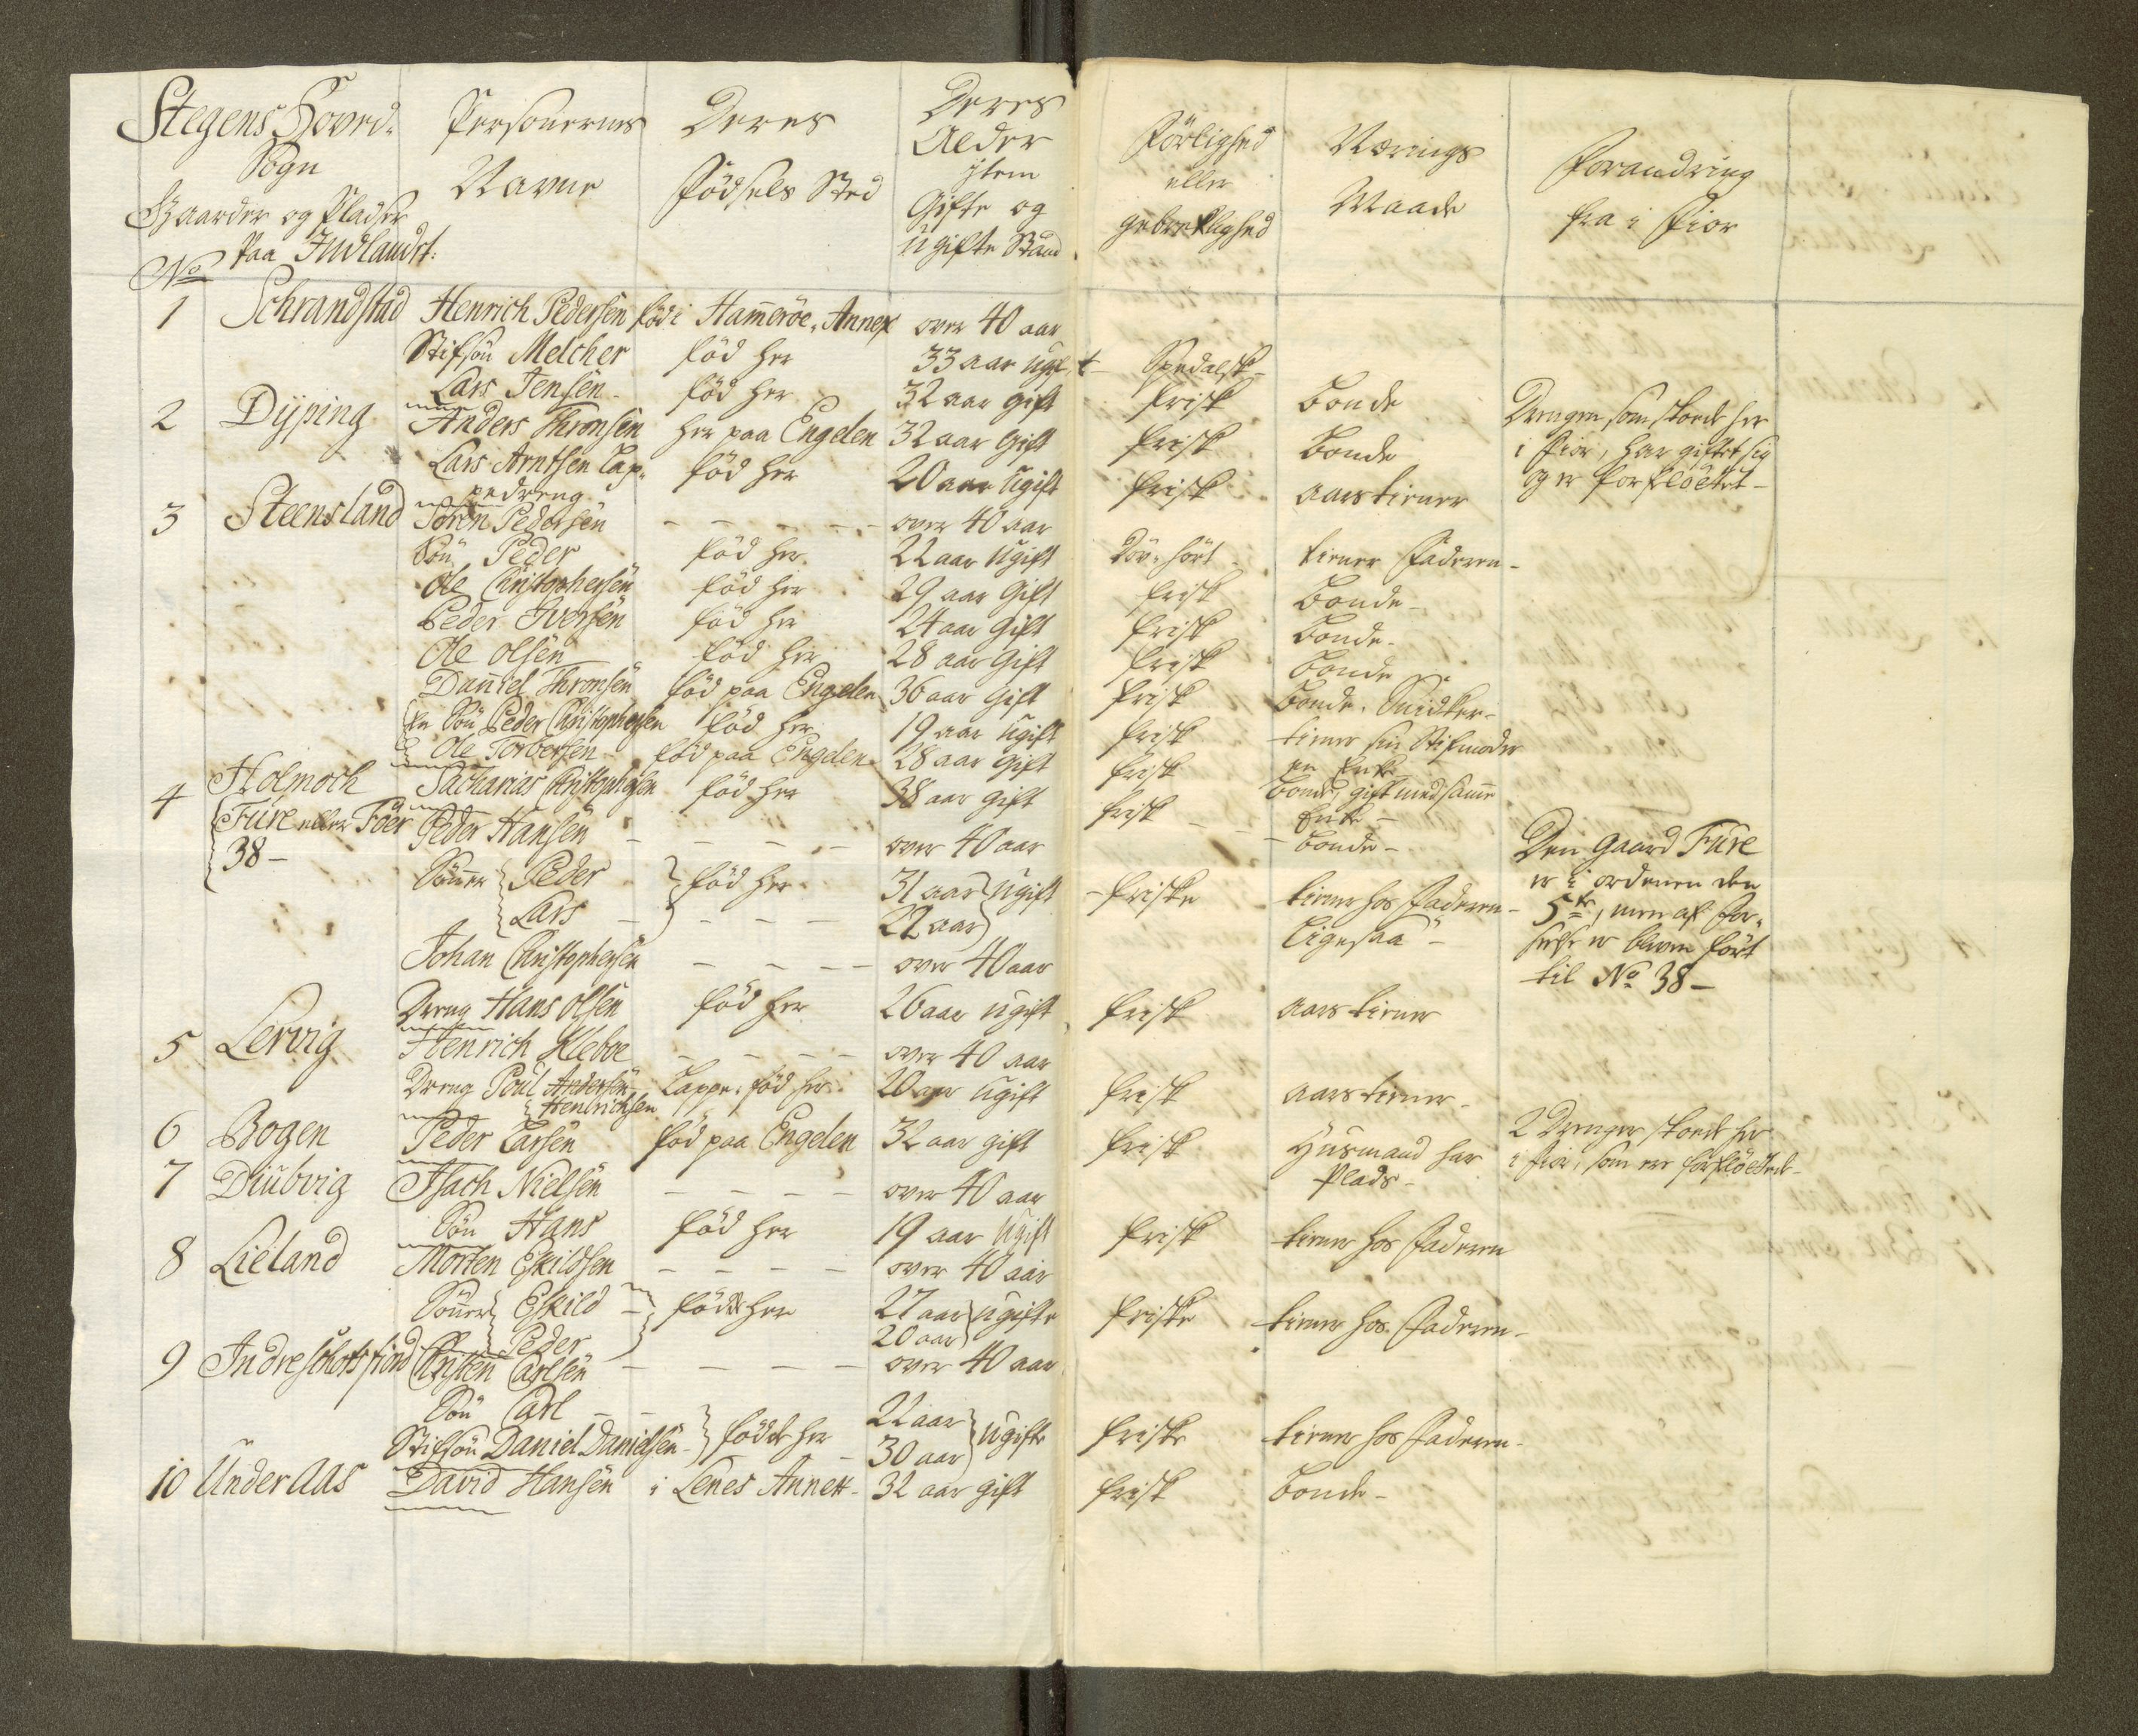 Stegens Hoved- Personernes Deres Deres
Sogn Navne Fødsels Sted Alder
Gaarder og Pladser ytem
Paa Indlandet: Gifte og
No ugifte Stand
Förlighed Nærings Forandring
eller Maade fra i Fior
gebreklighed
1 Schrandstad Henrich Pedersen föd i Hameröe-Annex over 40 aar
Stifsön Melcher föd her 33 aar ugift Spedalsk-
Lars Jensen föd her 32 aar gift frisk bonde
2 Dÿping Anders Thronsen her paa Engelen 32 aar Gift frisk bonde
Lars Arntsen Lap- föd her 20 aar Ugift frisk aarstiener
pedreng
Drengen som stoed her
i Fior, har giftet sig
og er forfløttet-
3 Steensland Sören Pedersen - - - - over 40 aar
Sön Peder föd her 22 aar Ugift döv-hört tiener Faderen-
Ole Christophersen föd her 29 aar Gift frisk bonde-
Peder Iversen föd her 24 aar Gift frisk bonde-
Ole Olsen föd her 28 aar Gift frisk bonde
Danniel Thronsen föd paa Engelen 36 aar Gift frisk bonde. Snidker-
En Sön Peder Christophersen föd her 19 aar Ugift frisk tiener sin Stifmoder
en Enke
Ole Torbersen föd paa Engelen 28 aar Gift frisk bonde, gift med samme
Enke-
4 Holmoch Sacharias Christophersen föd her 38 aar gift frisk - - bonde-
Fure eller Föer Peder Hansen - - - - over 40 aar
38-
Sönner Peder föd her 31 aar Ugift friske tiener hos Faderen-
Lars - - - - 22 aar ligesaa-
Den Gaard Fure
er i ordenen den
5te, men af For-
seelse er bleven fört
til No 38-
Johan Christophersen - - - - over 40 aar
Dreng Hans Olsen föd her 26 aar ugift frisk aars tiener
5 Lervig Henrich Kleboe - - - - over 40 aar
Dreng Poul Andersen Lappe. föd her 20 aar Ugift frisk aars tiener-
Henrichsen
6 Bogen Peder Larsen föd paa Engelen 32 aar gift frisk Husmand har
Plads-
2 Drenger stoed her
i Fior, som ere forfløttede-
7 Diubvig Isach Nielsen - - - - over 40 aar
Sön Hans föd her 19 aar Ugift frisk tiener hos Faderen
8 Lieland Morten Eskildsen - - - - over 40 aar
Sönner Eskild - föd her 27 aar ugifte friske tiener hos Faderen-
Peder 20 aar
9 Indre Schotsfiord Christen Carlsen - - - - over 40 aar
Sön Carl - - 22 aar
Stifsön Daniel Danielsen födde her 30 aar Ugifte friske tiener hos Faderen-
10 Under Aas David Hansen i Lenes Annex- 32 aar gift frisk bonde-